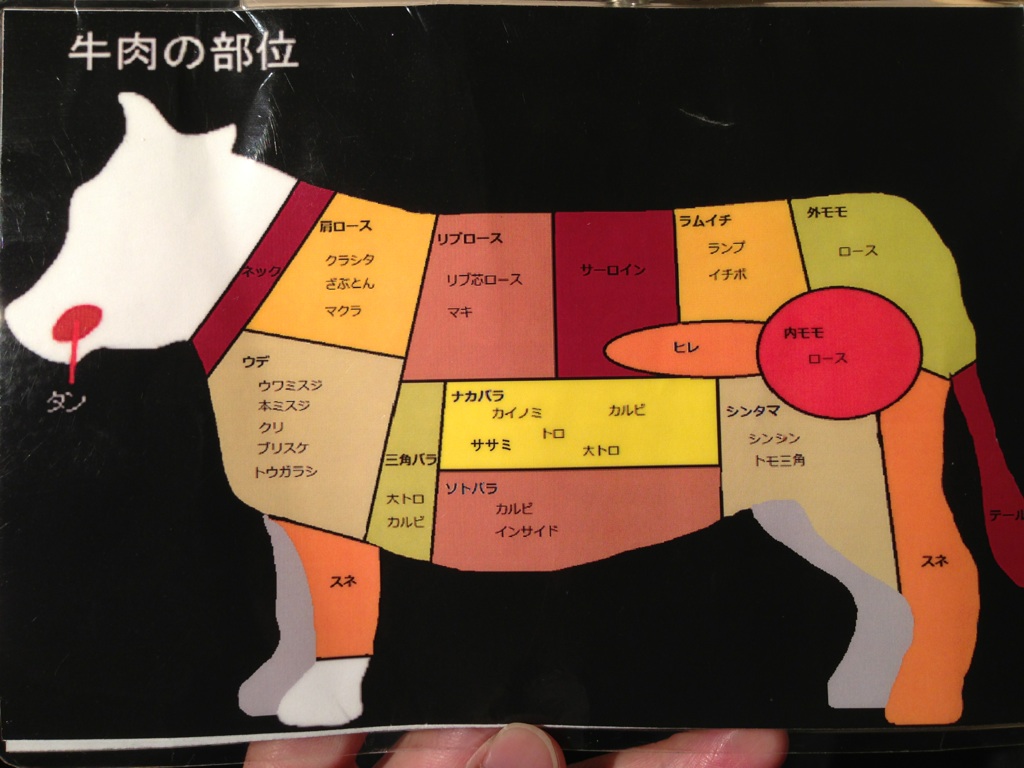 牛肉の部位
タン
ネック
肩ロース
クラシタ
ざぶとん
マクラ
リブロース
リブ芯ロース
マキ
サーロイン
ラムイチ
ランプ
イチボ
外モモ
ロース
ヒレ
内モモ
ロース
ウデ
ウワミスジ
本ミスジ
クリ
ブリスケ
トウガラシ
三角バラ
大トロ
カルビ
ナカバラ
カイノミ カルビ
トロ
ササミ 大トロ
ソトバラ
カルビ
インサイド
シンタマ
シンシン
トモ三角
スネ
スネ
テール